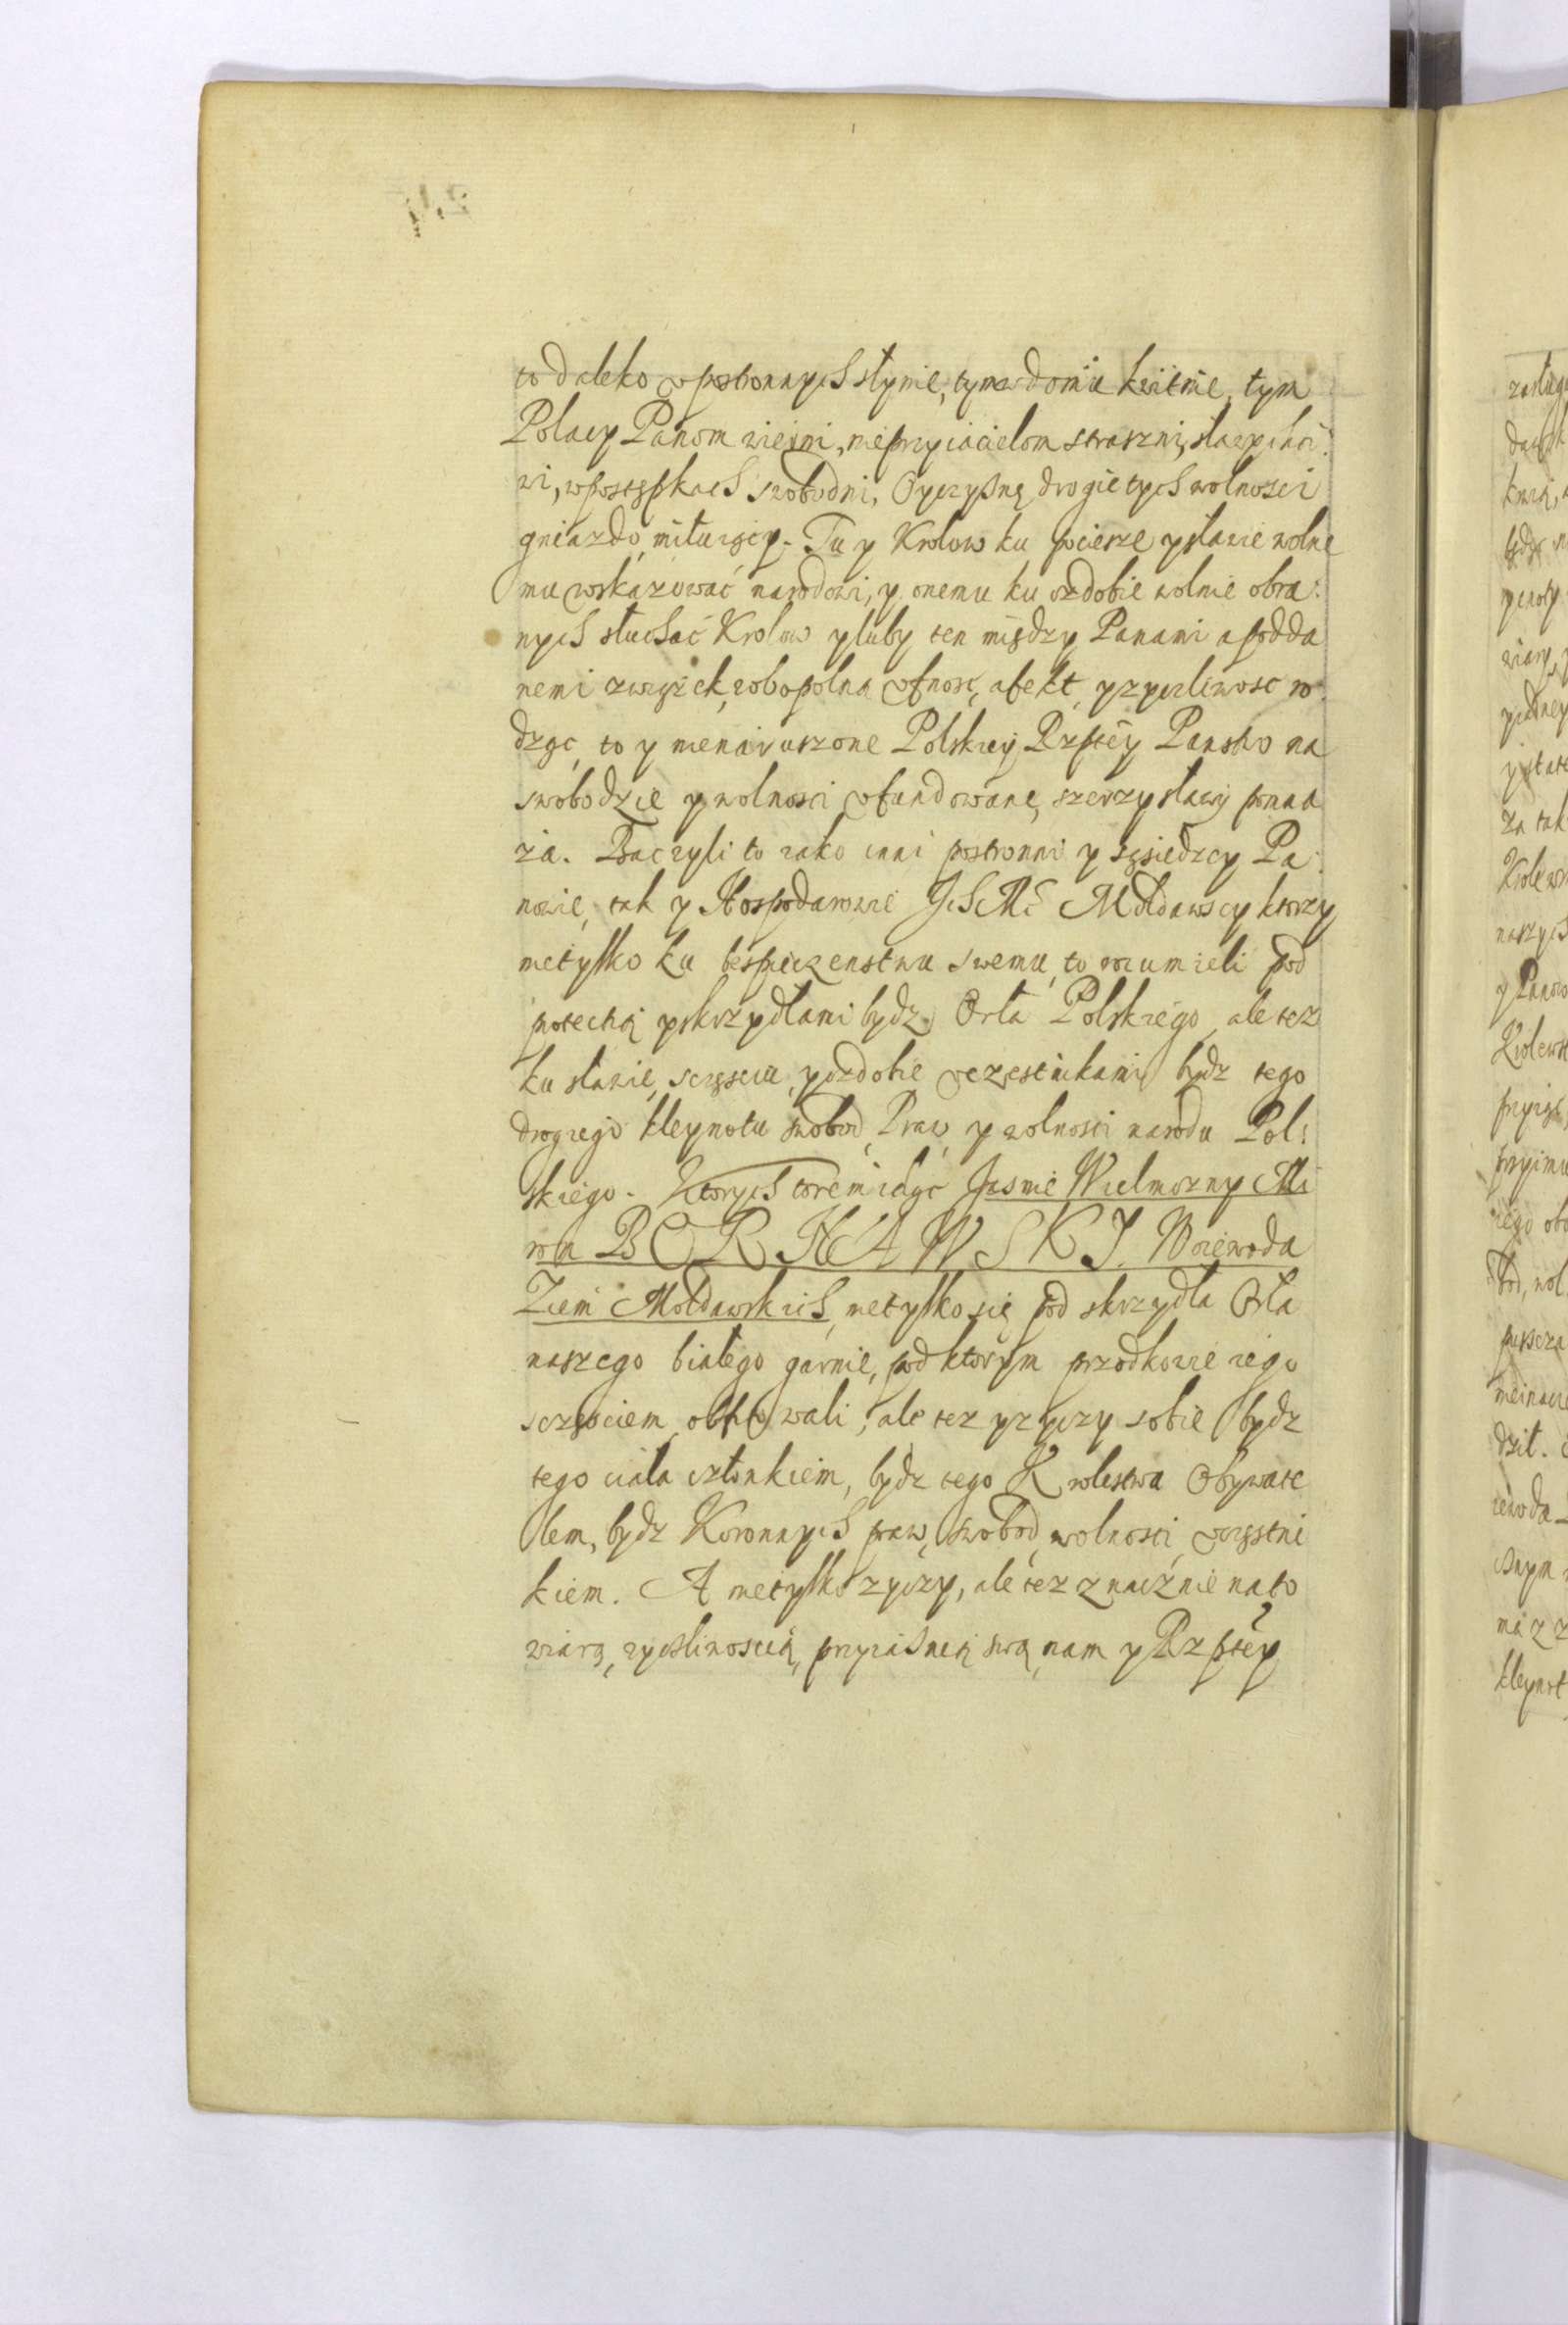 to daleko v postronnych słynie, tym w domu kwitnie, tym
Polacy Panom wierni, nieprzyiacielom straszni, sławy chci:
wi, w postępkach swobodni, Oyczysnę drogie tych wolnosci
gniazdo miłuiący. Tu y Krolow ku pociesze y sławie wolne
mu wskazować narodowi, y onemu ku ozdobie wolnie obra:
nych słuchać Krolow y luby ten między Panami a podda
nemi związek, zobopolna vfnosc, afekt, y zyczliwosc ro
dząc, to y nienaruszone Polskiey Rzptey Panstwo na
swobodzie y wolnosci vfundowane, szerzy sławy pomna
ża. Baczyli to iako inni postronni y sąsiedzcy Pa:
nowie, tak y Hospodarowie Ich Mc Mołdawscy ktorzy
nietylko ku bespieczenstwu swemu to rozumieli pod
potechą y skrzydłami bydz Orła Polskiego, ale tez
ku sławie, scząsciu, y ozdobie vczestnikami bydz tego
drogiego kleynotu swobod, Praw, y wolnosci narodu Pol:
skiego. Ktorych torem idąc Jasnie Wielmozny Mi
ron BORNAWSKI Woiewoda
Ziem Mołdawskich, nietylko się pod skrzydła Orła
naszego białego garnie, pod ktorym przodkowie iego
sczęsciem obfitowali, ale tez y zyczy sobie bydz
tego ciała członkiem, bydz tego Krolestwa Obywate
lem, bydz Koronnych praw, swobod, wolnosci, vczęstni
kiem. A nietylko zyczy, ale tez znacznie na to
wiarą, zyczliwoscią, przyiaznią swą nam y Rzptey